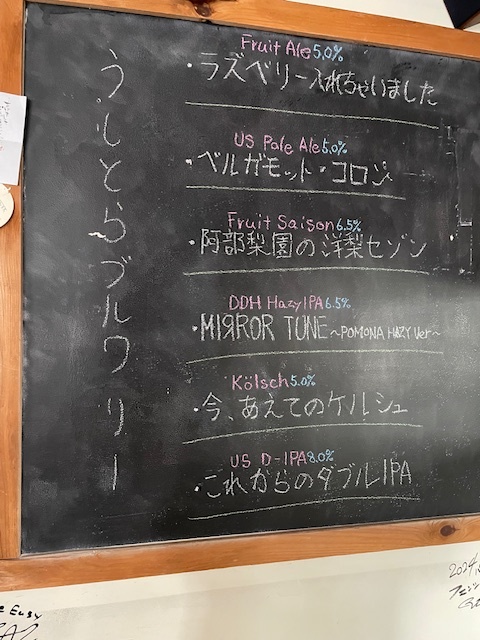 うしとらブルワリー
Fruit Ale 5.0%
・ラズベリー入れちゃいました
US Pale Ale 5.0%
・ベルガモット・コロン
Fruit Saison 6.5%
・阿部梨園の洋梨セゾン
DDH Hazy IPA 6.5%
・MIRROR TUNE ~POMONA HAZY Ver~
Kölsch 5.0%
・今、あえてのケルシュ
US D-IPA 8.0%
・これからのダブルIPA